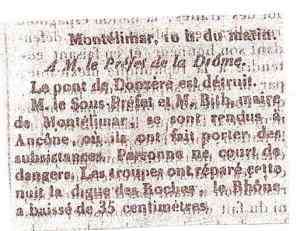 Montélimar, 10 h. du matin.
A M. le Préfet de la Drôme.
Le pont de Donzère est détruit.
M. le Sous-Préfet et M. Bith, maire
de Montélimar, se sont rendus à
Ancône, où ils ont fait porter des
subsistances. Personne ne court de
dangers. Les troupes ont réparé cette
nuit la digue des Roches, le Rhône
a baissé de 35 centimètres.